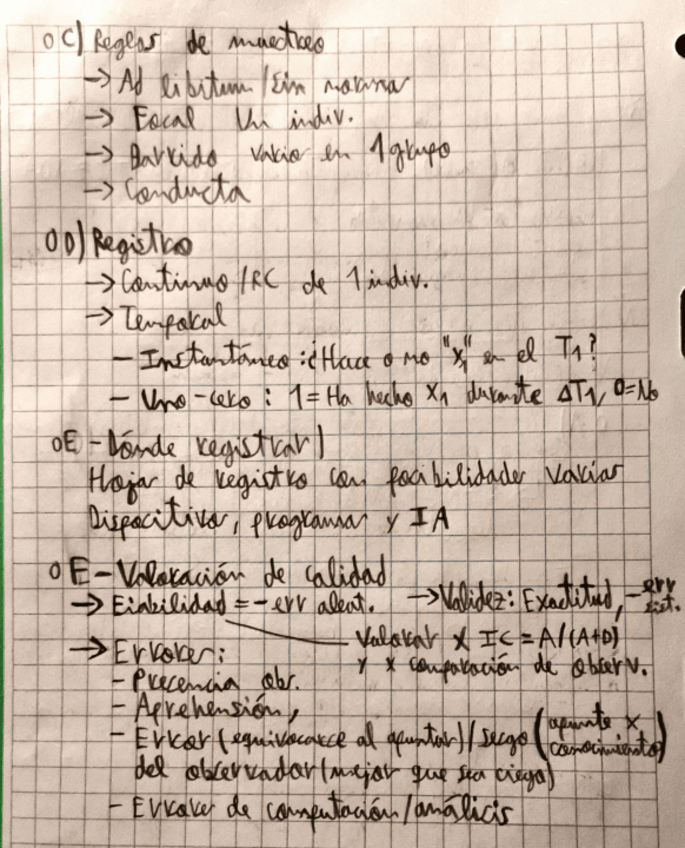 o C) Reglas de muestreo
→ Ad libitum / Sin norma
→ Focal Un indiv.
→ Barrido vario en 1 grupo
→ Conducta
o D) Registro
→ Continuo / RC de 1 indiv.
→ Temporal
- Instantáneo: ¿Hace o no "x₁" en el T₁?
- Uno-cero: 1 = Ha hecho x₁ durante ΔT₁, 0 = No
o E - Dónde registrar)
Hojas de registro con posibilidades varias
Dispocitivos, programas y IA
o E - Valoración de calidad
→ Fiabilidad = - err aleat. → Validez: Exactitud, - err sist.
Valorar x IC = A/(A+D)
y x comparación de observ.
→ Errores:
- Precencia obs.
- Aprehensión,
- Error (equivocarce al apuntar) / sesgo (apunte x conocimiento)
del observador (mejor que sea ciego)
- Errores de computación / análicis